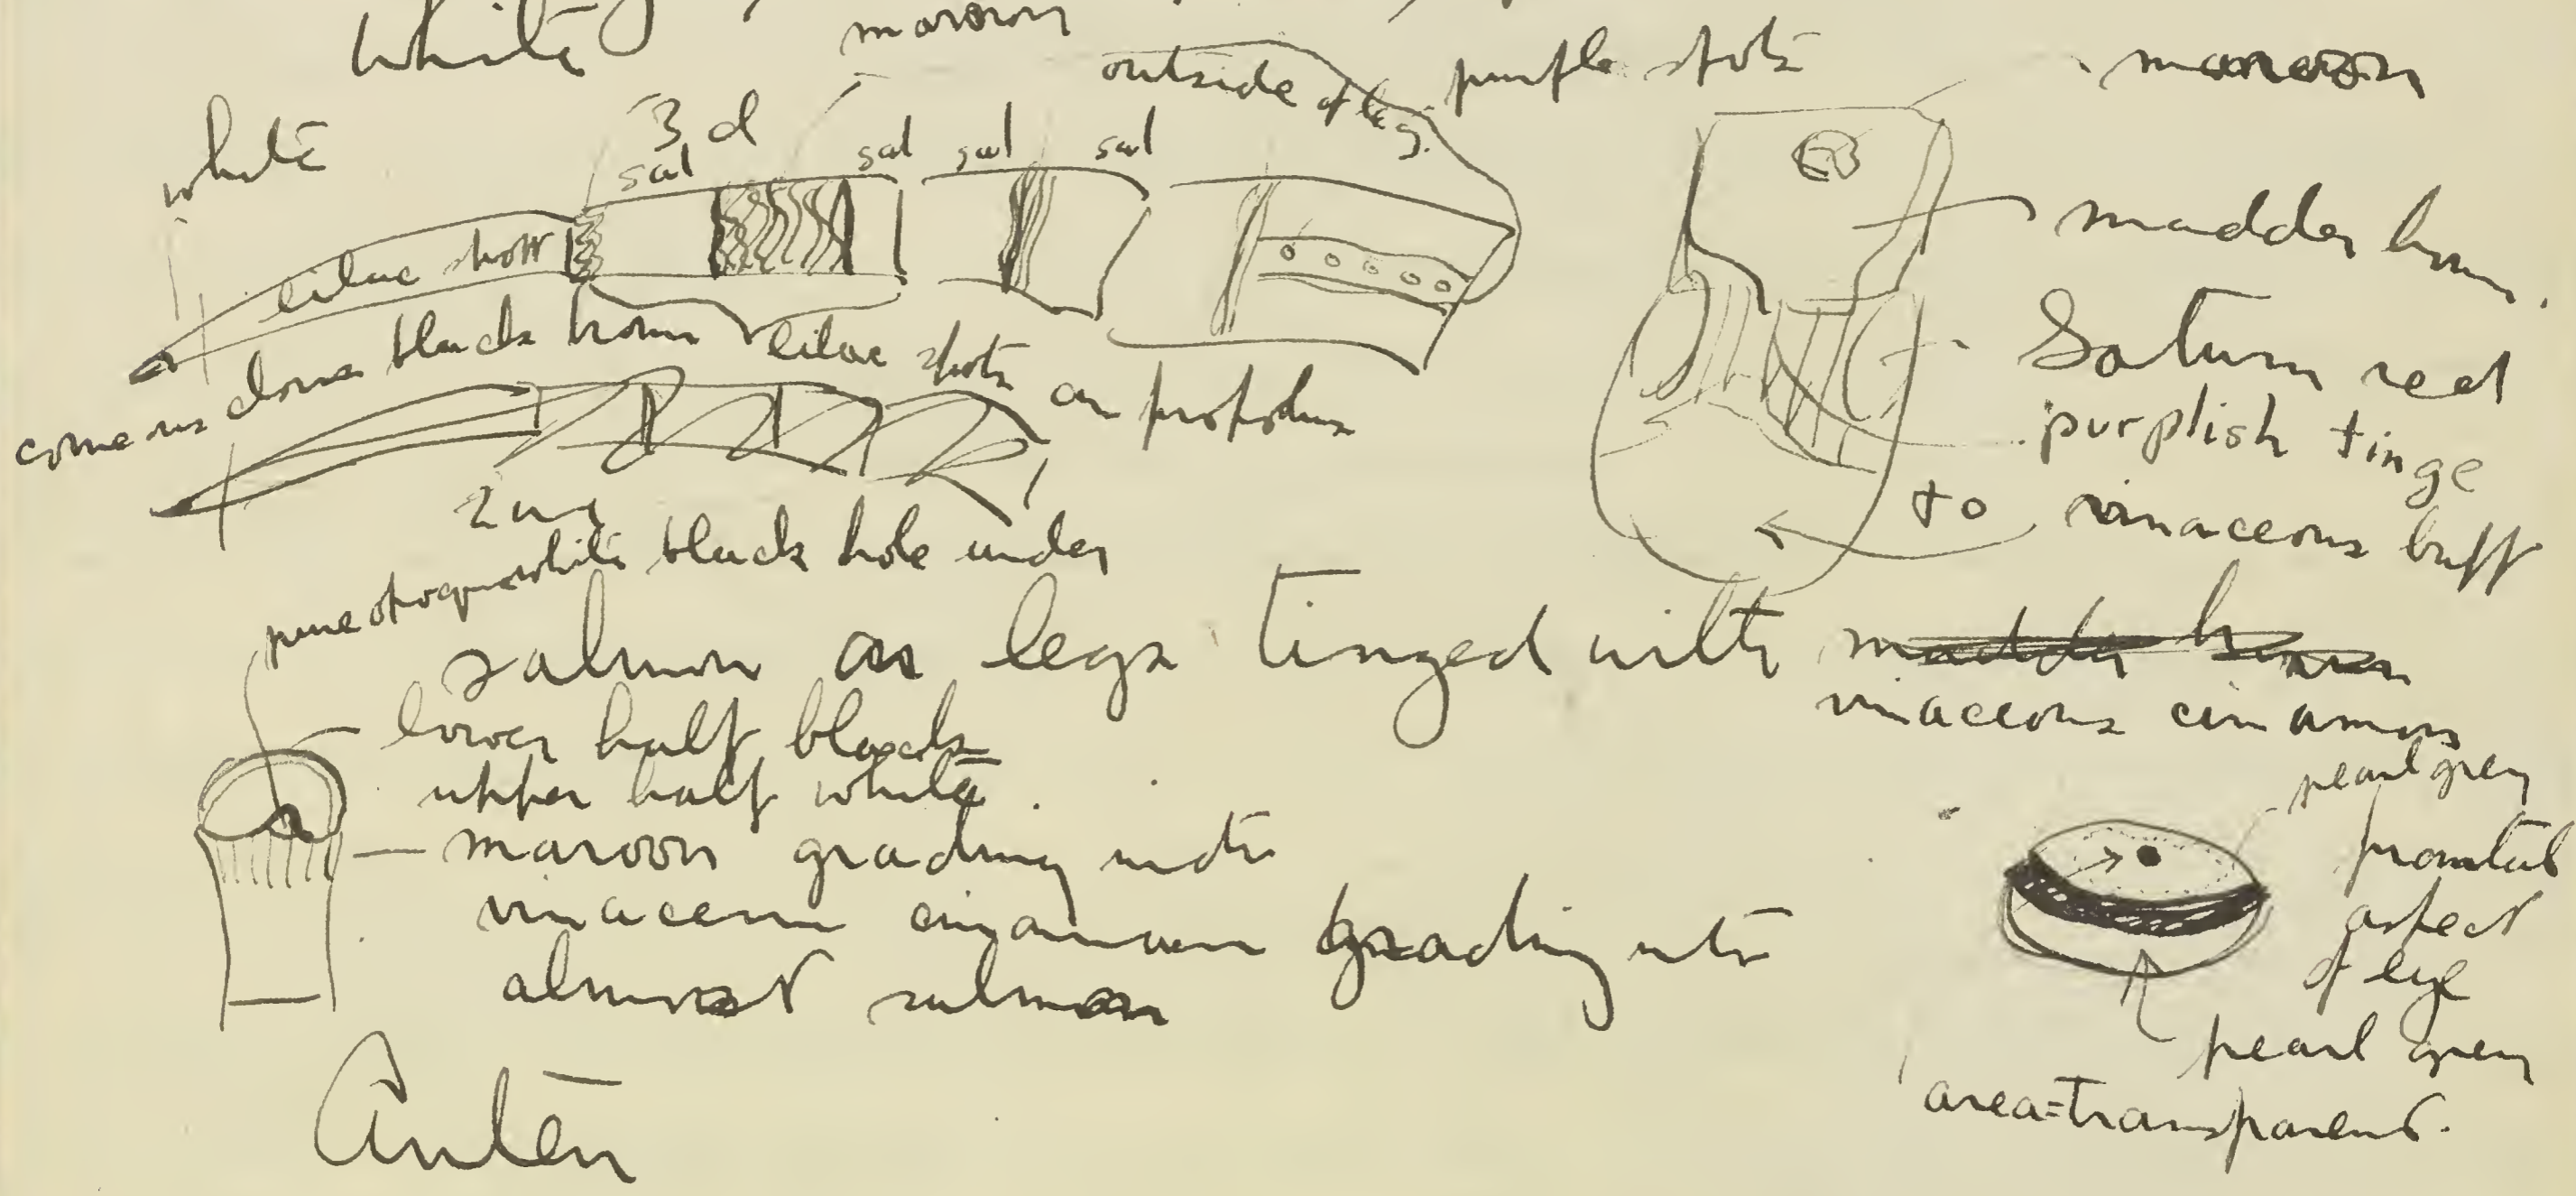 white
maroon
outside of leg.
purple spots
maroon
white
3 d
sal
sal
sal
sal
lilac spots
madder brown.
comes down black brown
lilac spots on propodus
Saturn red
purplish tinge
to vinaceous buff
2nd
pure opaque white black hole under
salmon on legs tinged with madder brown
vinaceous cinamon
lower half black
upper half white.
maroon grading into
vinaceous cinamon grading into
almost salmon
pearl grey
frontal
aspect
of eye
pearl grey
area = transparent.
Anten